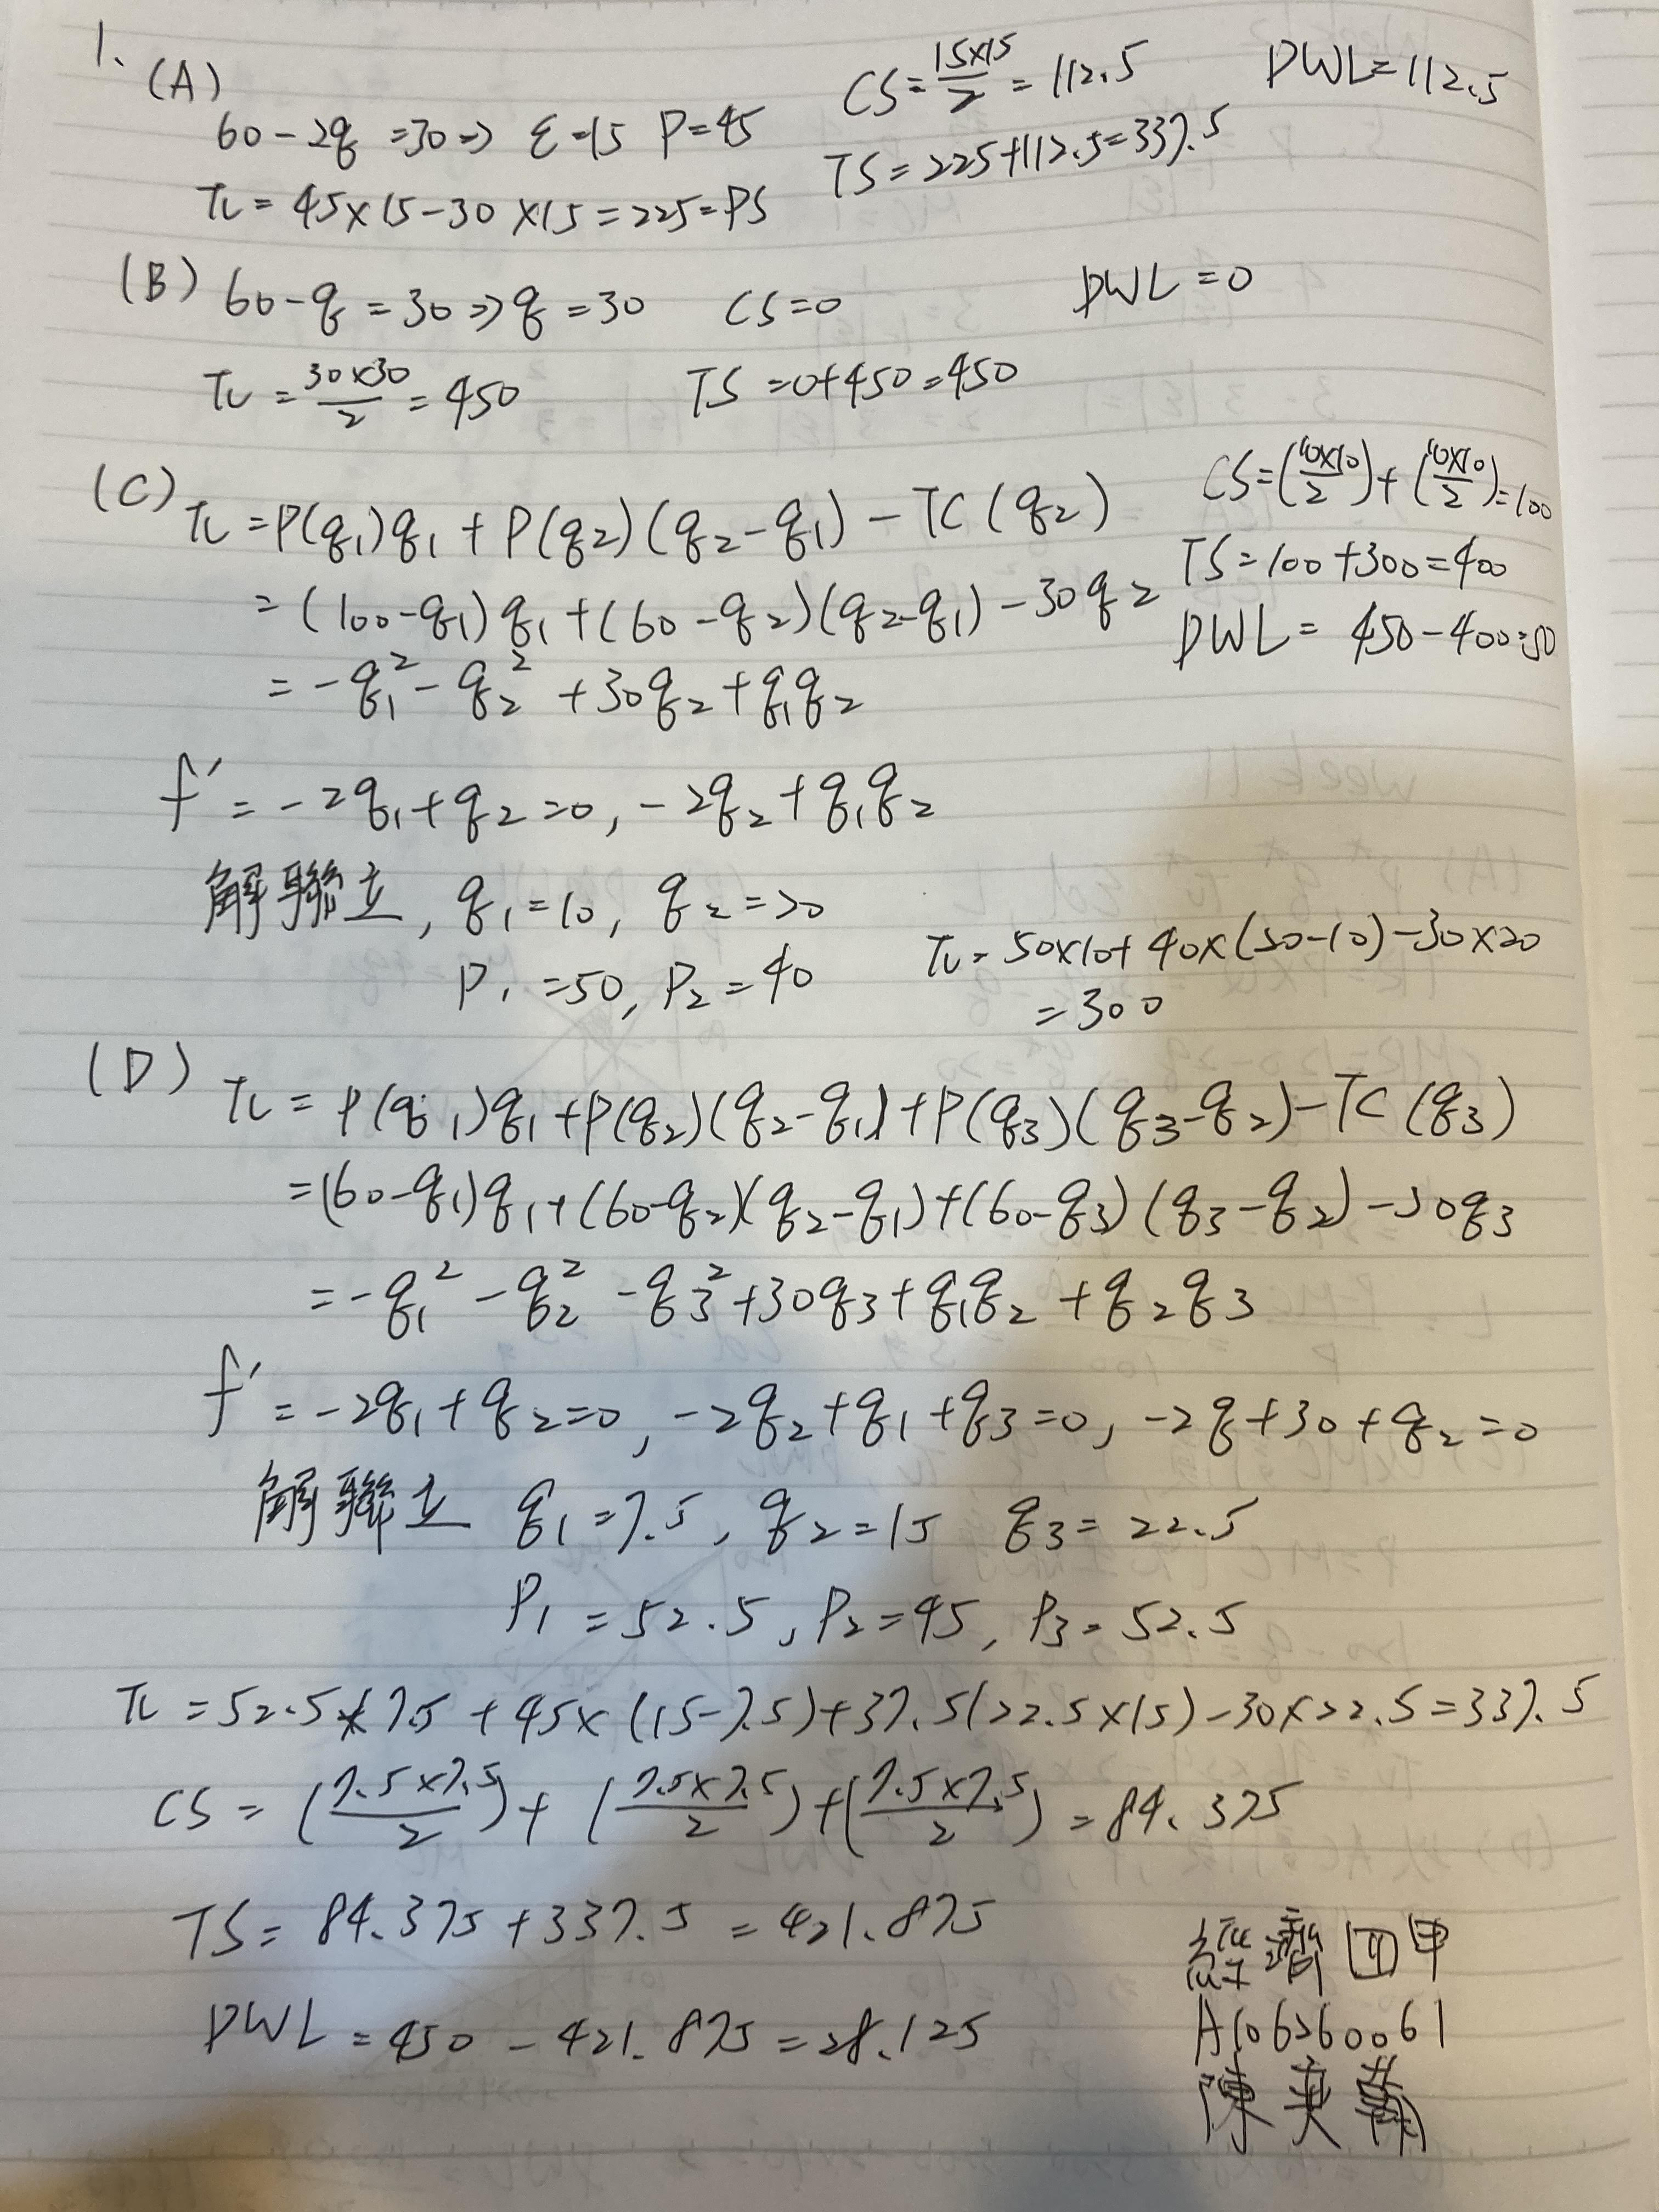 1. (A)
60-2q=30⇒ q=15 P=45
π = 45×15-30×15=225=PS
CS=\frac{15×15}{2}=112.5
DWL=112.5
TS=225+112.5=337.5
(B) 60-q=30⇒q=30 CS=0 DWL=0
π=\frac{30×30}{2}=450 TS=0+450=450
(C) π=P(q₁)q₁+P(q₂)(q₂-q₁)-TC(q₂)
=(100-q₁)q₁+(60-q₂)(q₂-q₁)-30q₂
=-q₁²-q₂²+30q₂+q₁q₂
CS=(\frac{10×10}{2})+(\frac{10×10}{2})=100
TS=100+300=400
DWL=450-400=50
f'=-2q₁+q₂=0, -2q₂+q₁q₂
解聯立, q₁=10, q₂=20
P₁=50, P₂=40
π=50×10+40×(20-10)-30×20
=300
(D) π=P(q₁)q₁+P(q₂)(q₂-q₁)+P(q₃)(q₃-q₂)-TC(q₃)
=(60-q₁)q₁+(60-q₂)(q₂-q₁)+(60-q₃)(q₃-q₂)-30q₃
=-q₁²-q₂²-q₃²+30q₃+q₁q₂+q₂q₃
f'=-2q₁+q₂=0, -2q₂+q₁+q₃=0, -2q+30+q₂=0
解聯立 q₁=7.5, q₂=15 q₃=22.5
P₁=52.5, P₂=45, P₃=52.5
π=52.5×7.5+45×(15-7.5)+37.5(22.5×15)-30×22.5=337.5
CS=(\frac{7.5×7.5}{2})+(\frac{7.5×7.5}{2})+(\frac{7.5×7.5}{2})=84.375
TS=84.375+337.5=421.875
DWL=450-421.875=28.125
經濟四甲
A106260061
陳奕